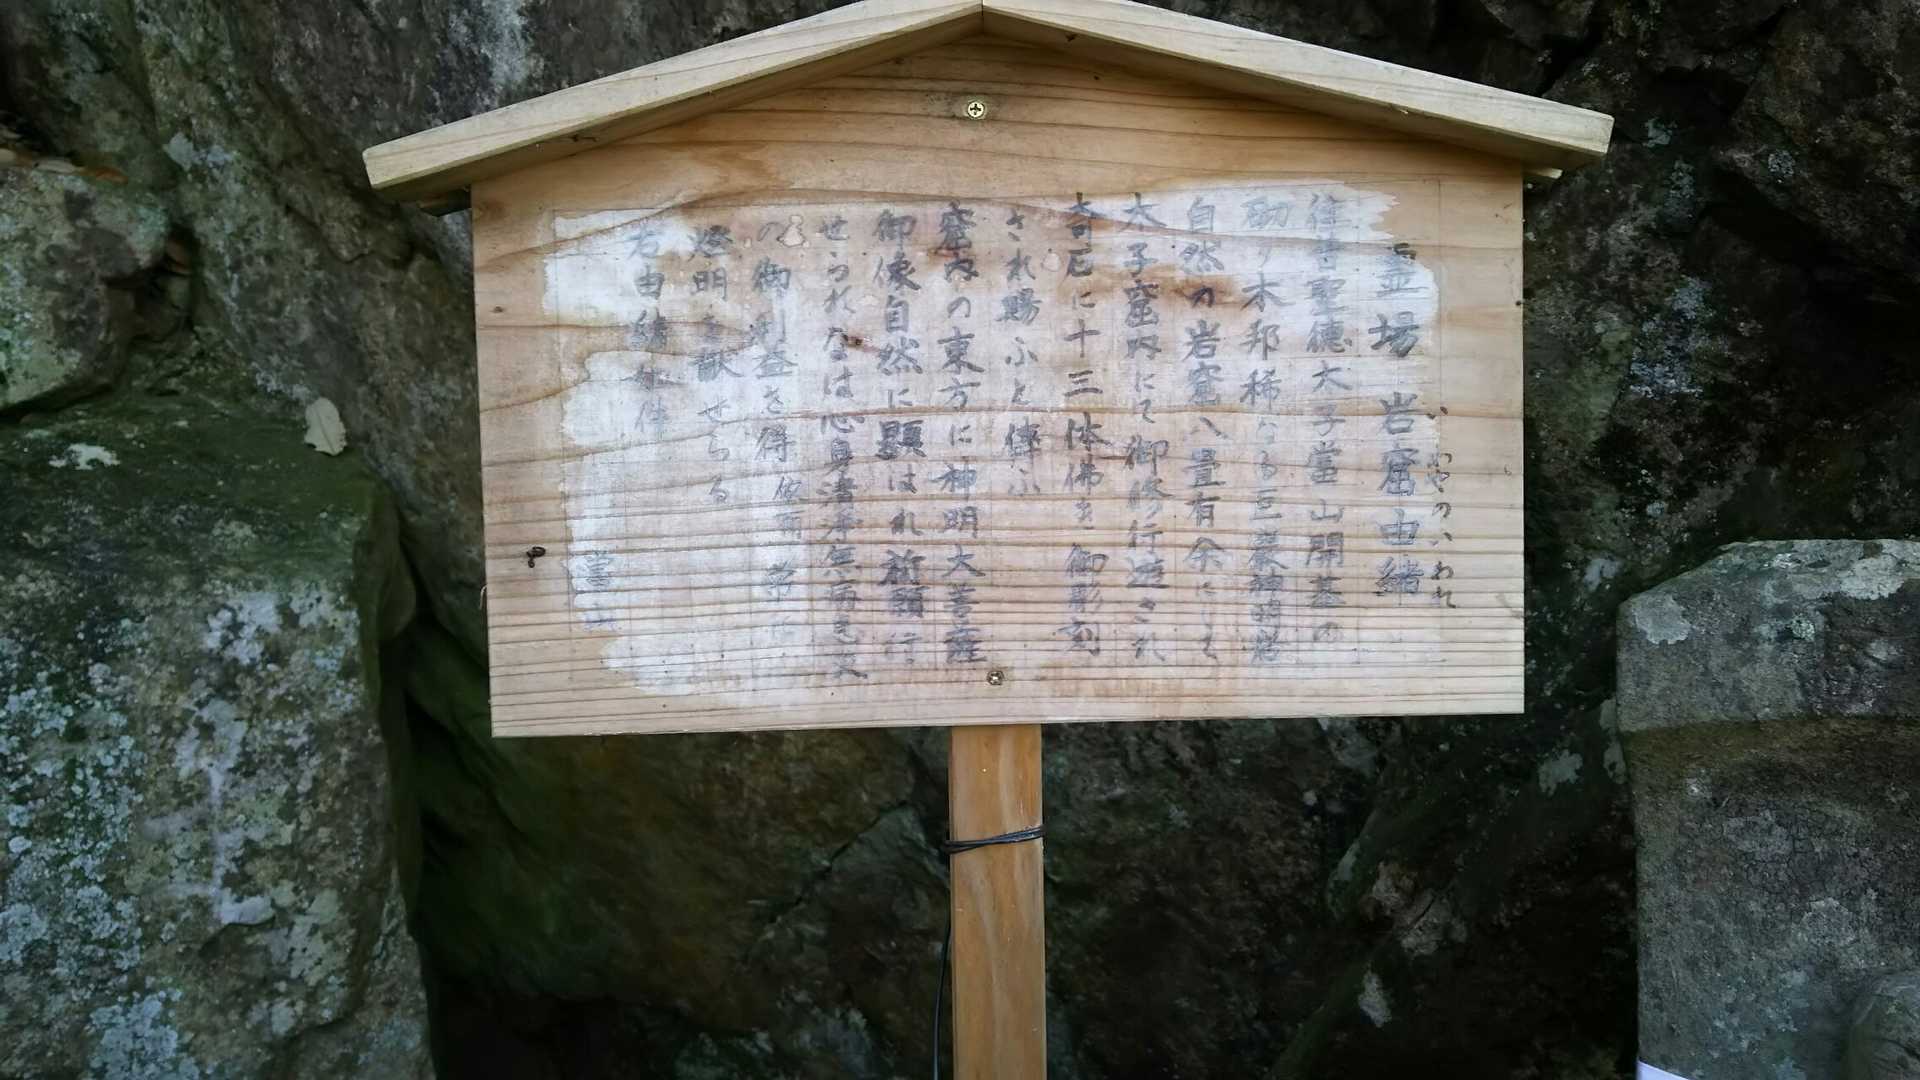 霊場 岩窟由緒
いわやのいわれ
往昔聖徳太子當山開基の
本邦稀なる巨巌
自然の岩窟八畳有余にして
太子窟内にて御修行遊され
奇石に十三体佛を御彫刻
され賜ふと傳ふ
窟内の東方に神明大菩薩
御像自然に顕はれ祈願
せられなは心身清浄無病
の御利益を得
燈明を献せらる
右由緒如件
當山